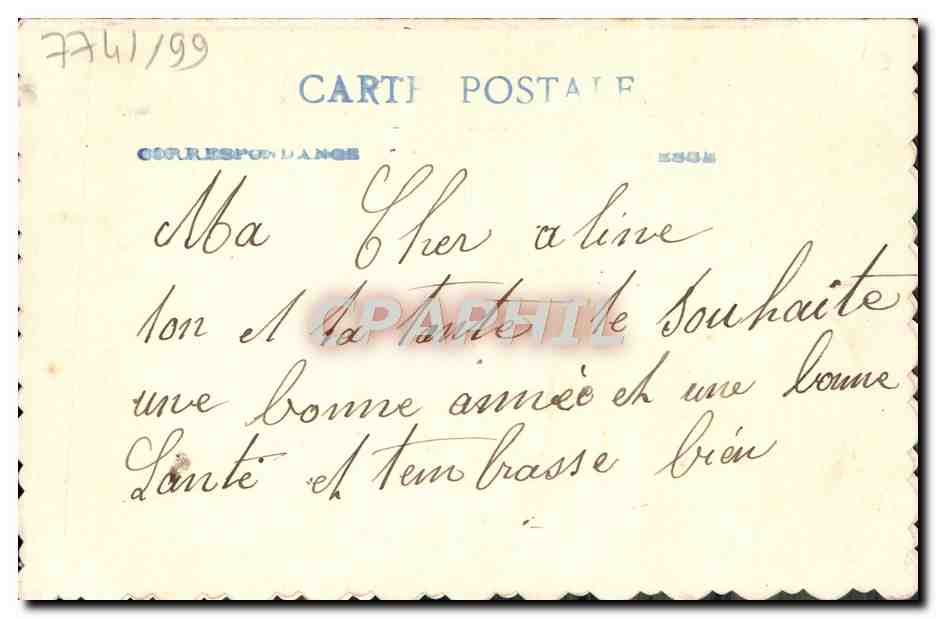 7741/99
CARTE POSTALE
CORRESPONDANCE
Ma Cher aline
ton et ta tante te souhaite
une bonne année et une bonne
Santé et tembrasse bien
CPAPHIL